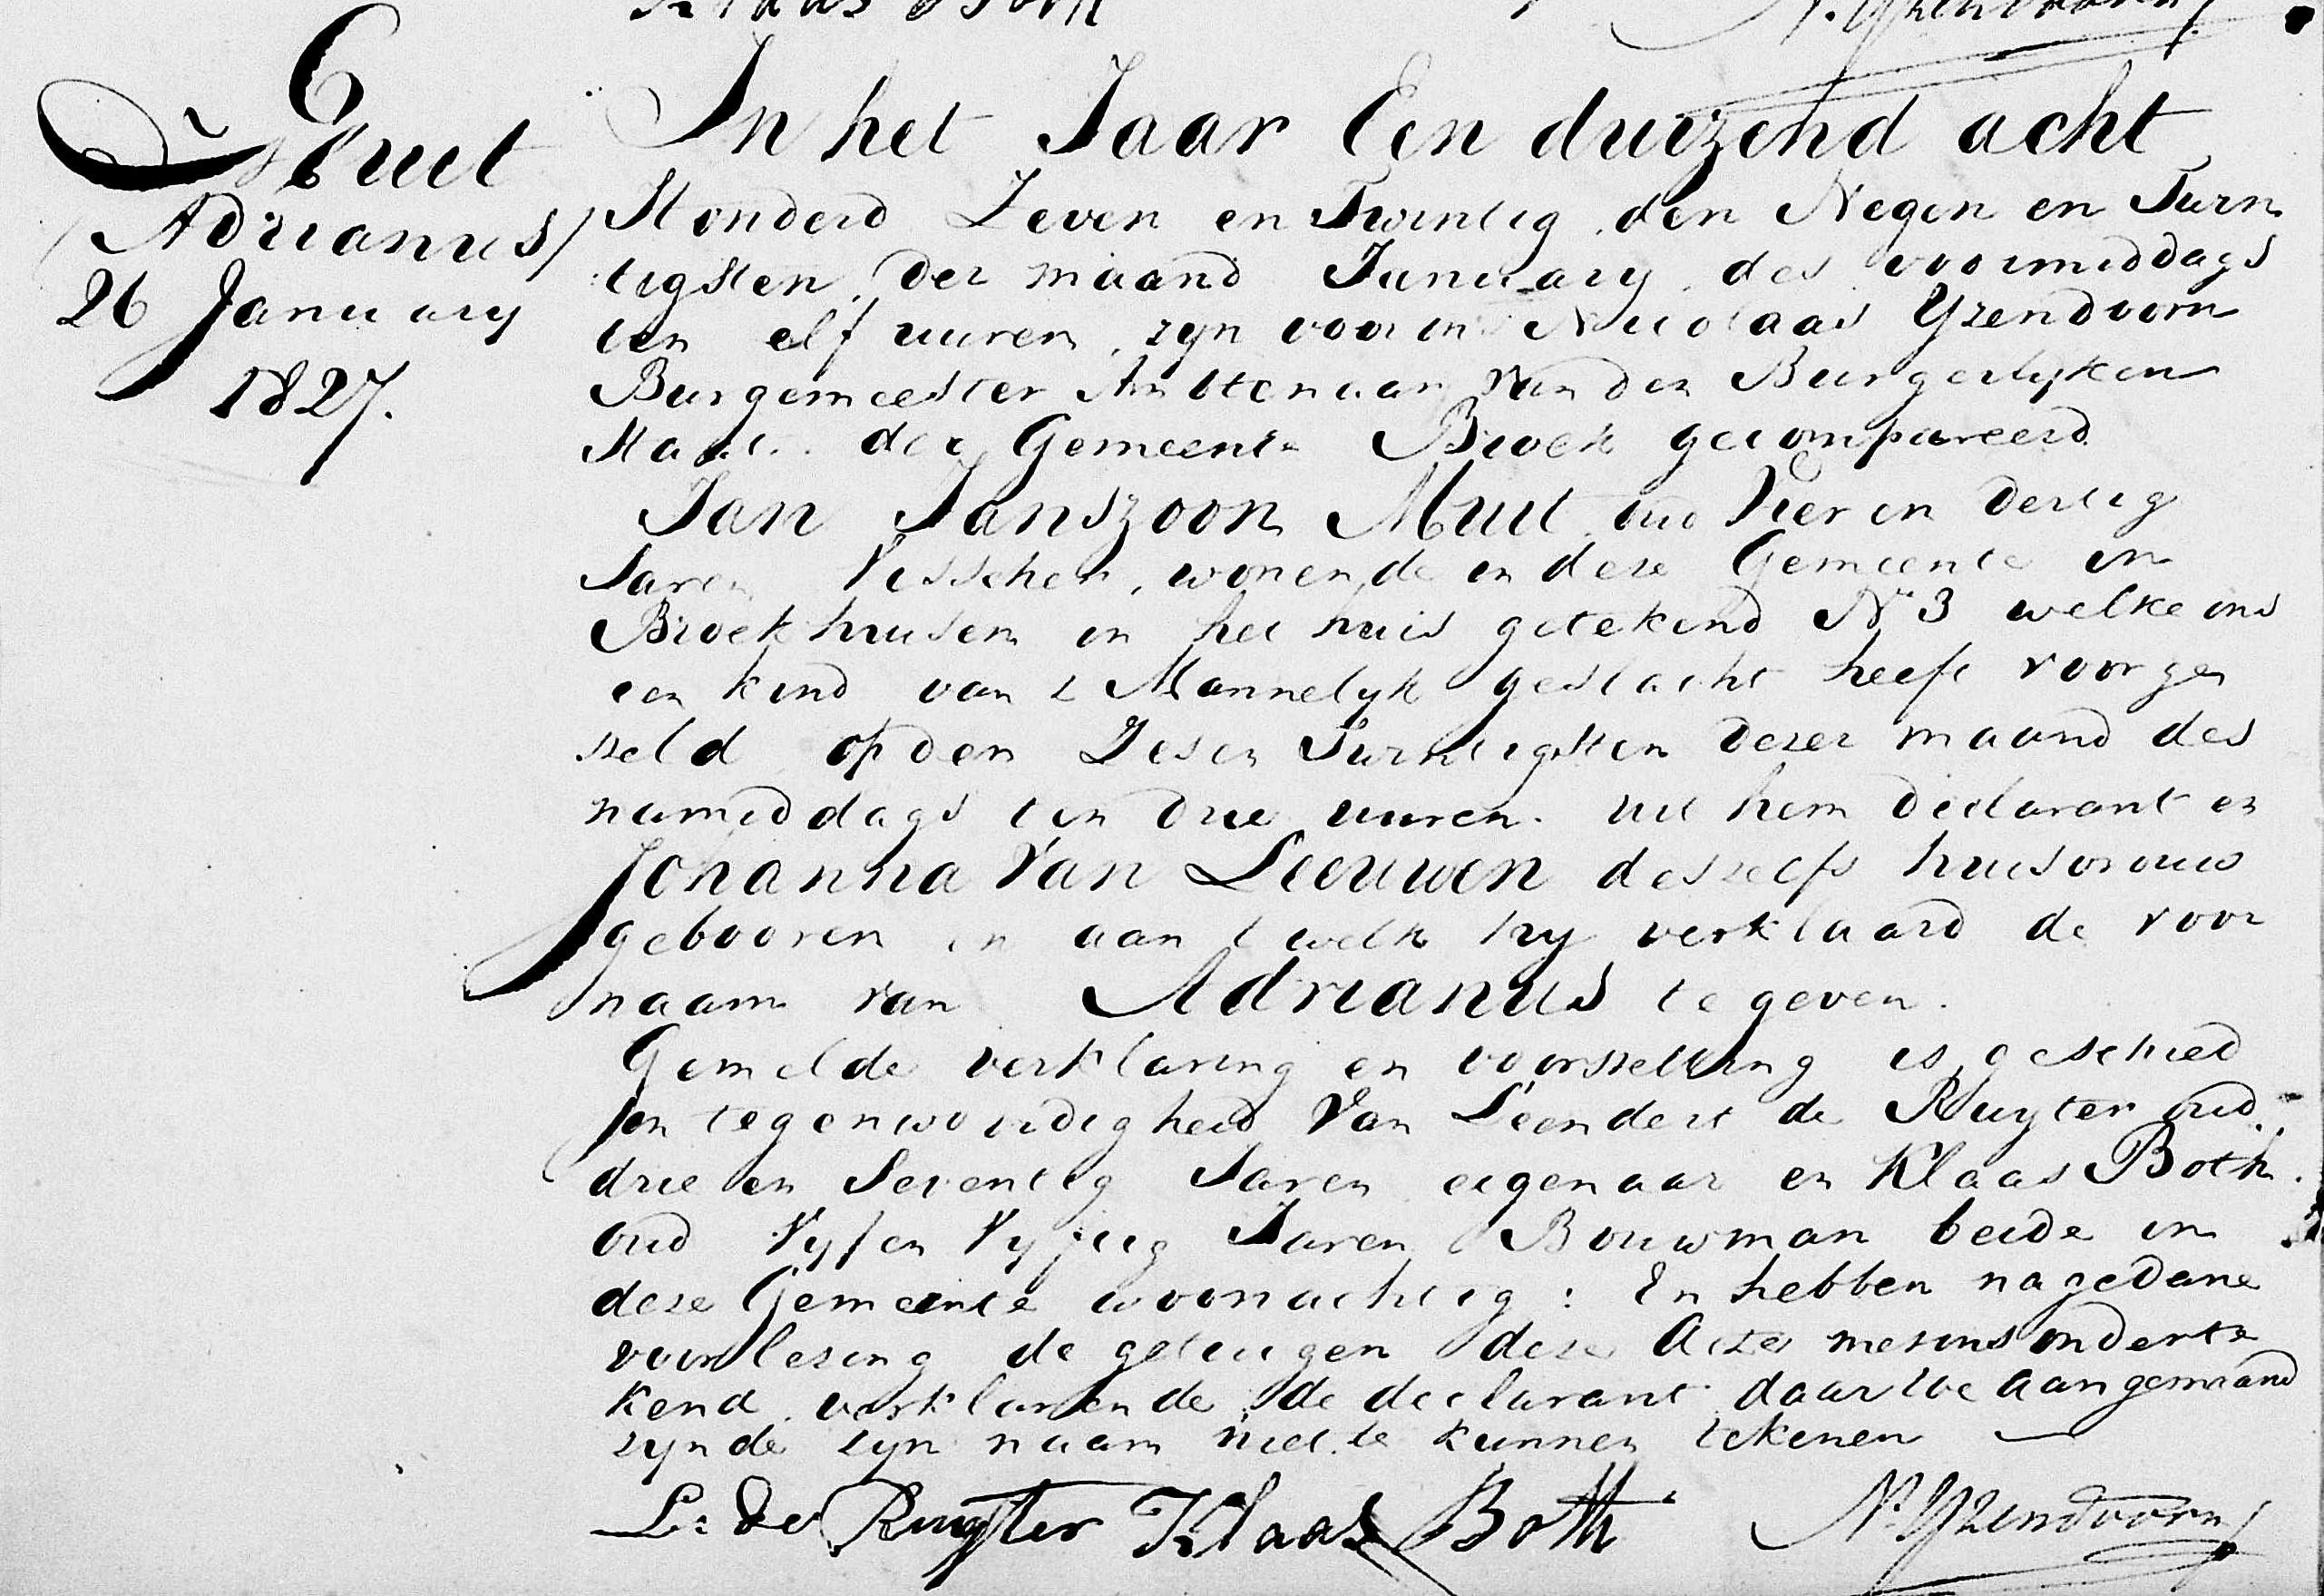 Klaas Both N. Yzendoorn
6
Muet
Adrianus
26 January
1827.
In het Jaar Een duizend acht
Honderd Zeven en Twintig den Negen en Twin
tigsten der maand January des voormiddags
ten elf uuren zyn voor ons Nicolaas Yzendoorn
Burgemeester Ambtenaar van den Burgerlyken
Staat der Gemeente Broek gecompareerd
Jan Janszoon Muet oud Vier en dertig
Jaren Visscher, wonende in deze Gemeente in
Broekhuisen in het huis getekend N 3 welke ons
een kind van t Mannelyk geslacht heeft voorge
steld op den Zesen Twintigsten dezer maand des
namiddags ten drie uuren uit hem declarant en
Johanna Van Leeuwen deszelfs huisvrouw
gebooren en aan t welk hy verklaard de voor
naam van Adrianus te geven.
Gemelde verklaring en voorstelling is geschied
in tegenwoordigheid Van Leendert de Ruyter oud
drie en Seventig Jaren eigenaar en Klaas Both
oud Vyf en Vyftig Jaren Bouwman beide in
deze Gemeente woonachtig : En hebben na gedane
voorlezing de getuigen deze Acte met ons onderte
kend verklarende de declarant daartoe aangemaand
zynde zyn naam niet te kunnen tekenen
L: de Ruyter Klaas Both N. Yzendoorn